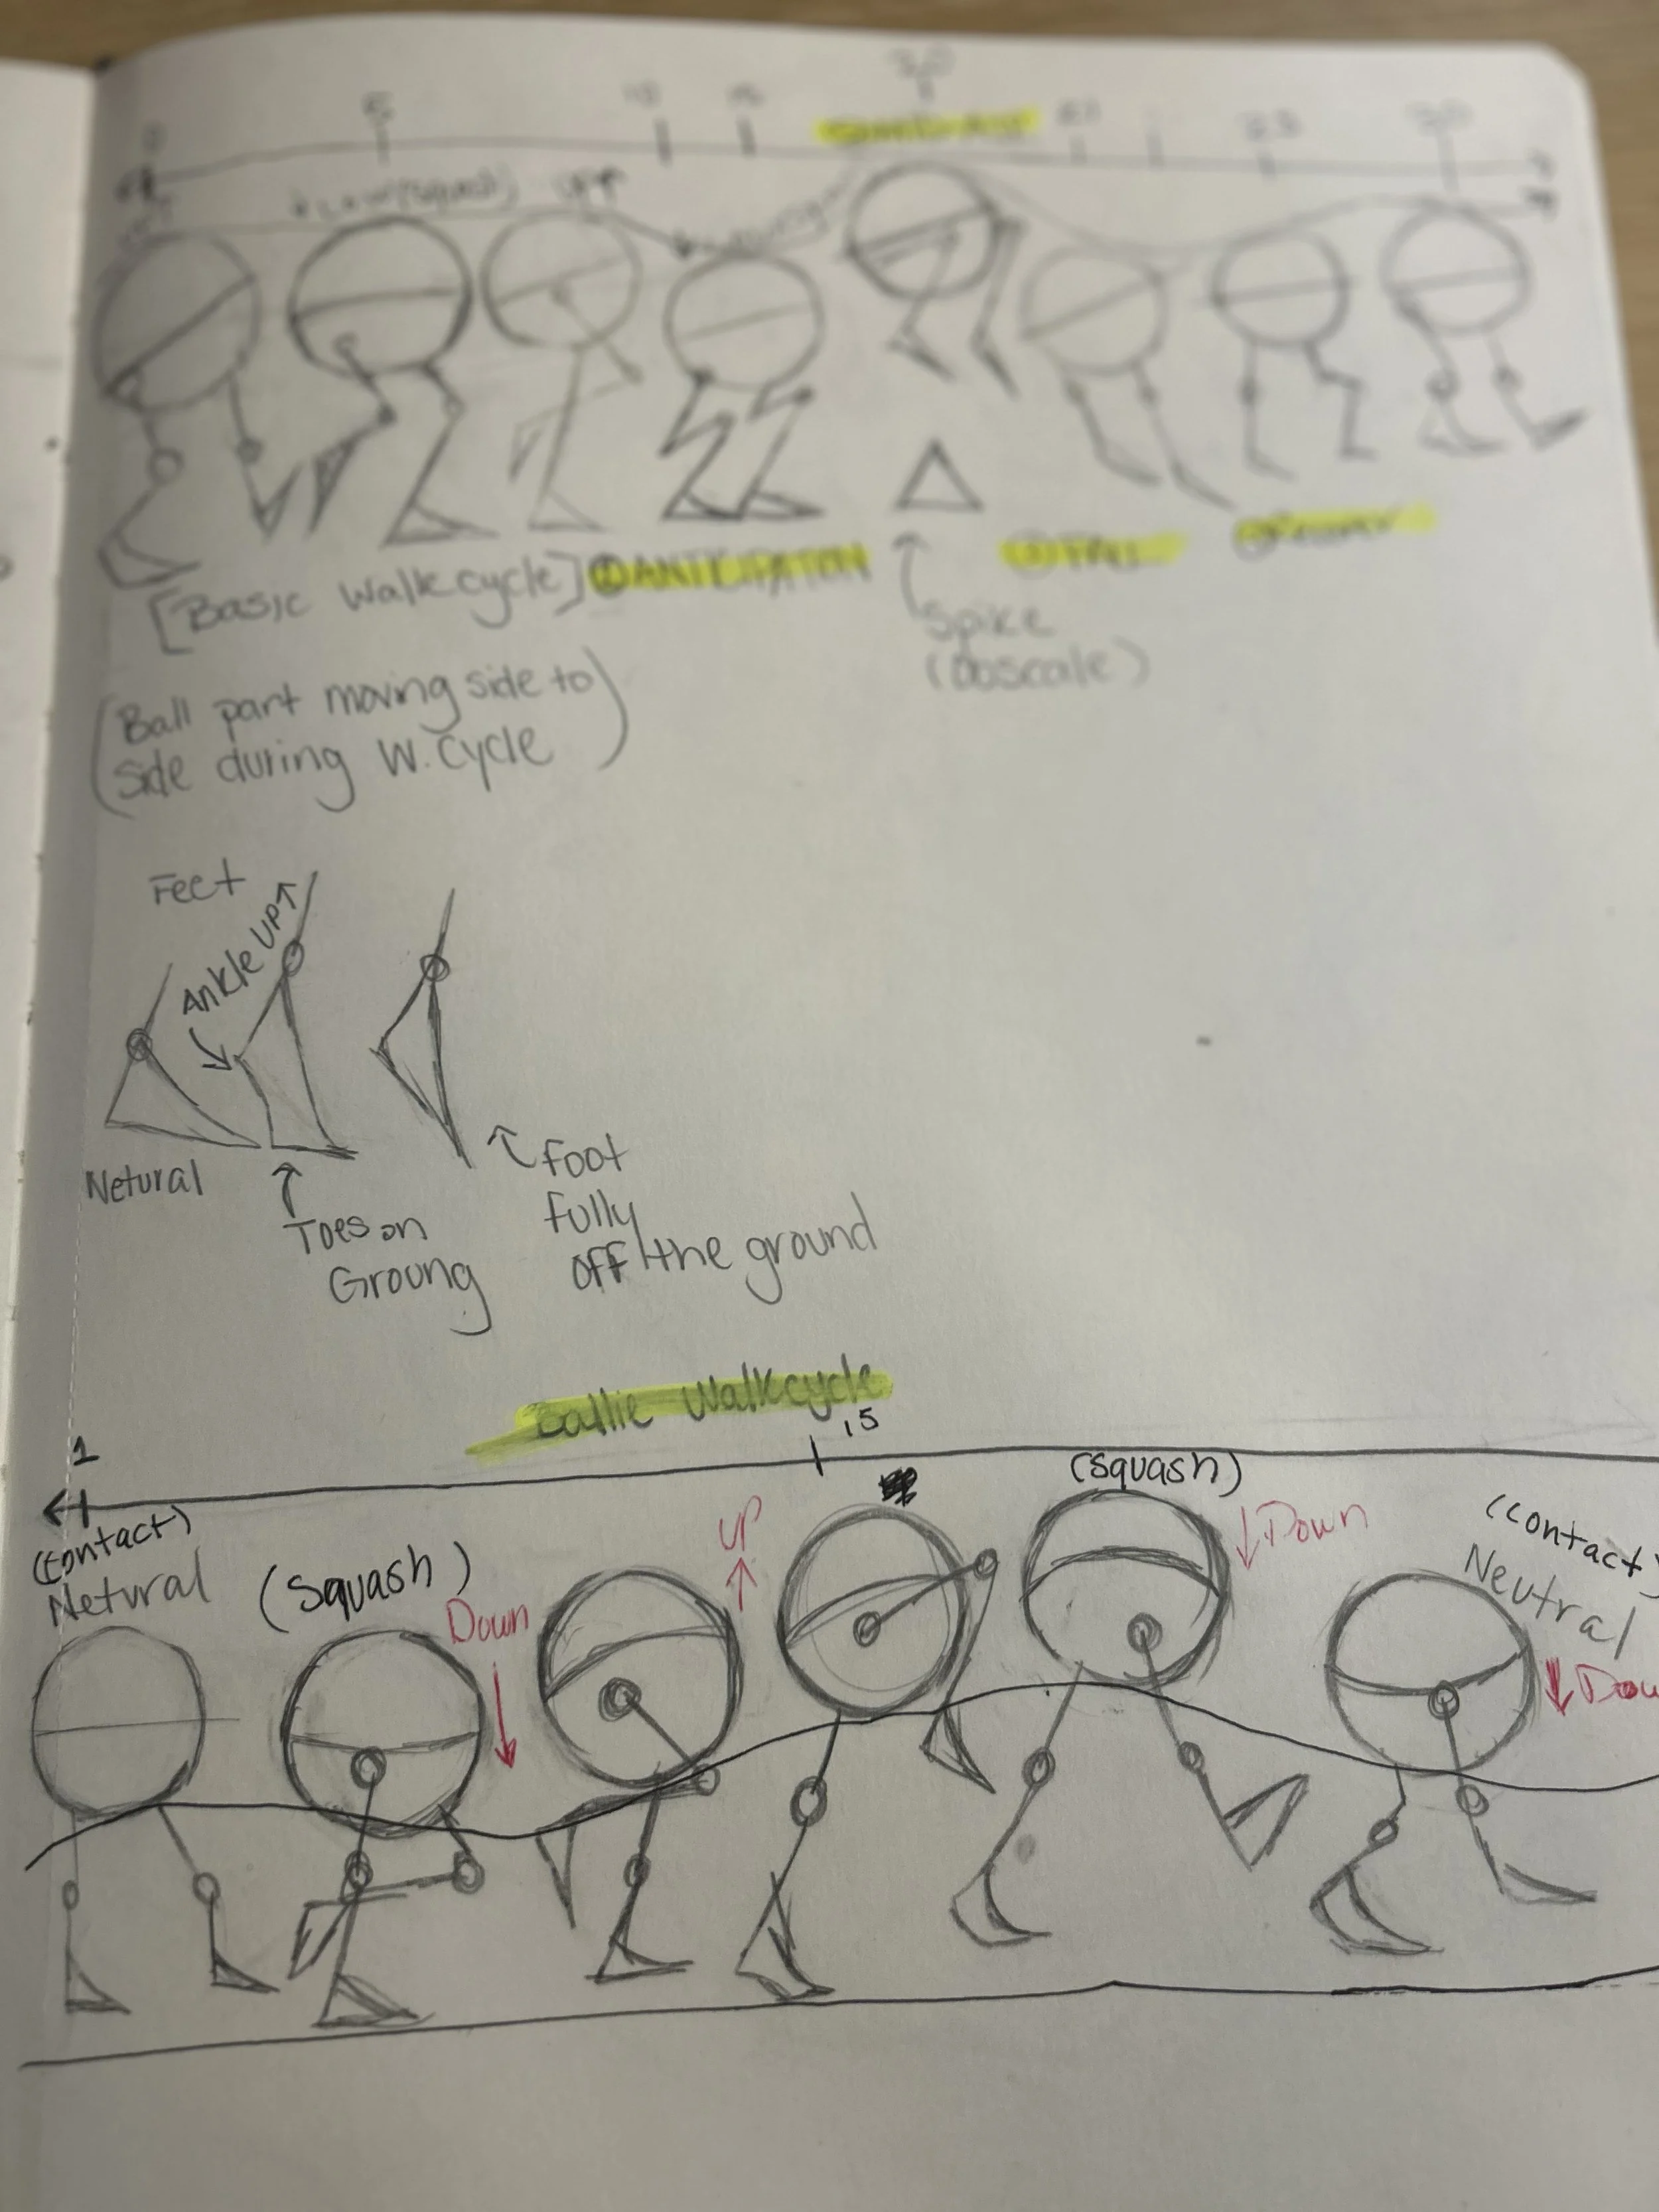 5
10
15
20
21
23
30
UP↑
[Basic Walkcycle] ①ANTICIPATION
②FALL
Spike
(Obscale)
(Ball part moving side to
side during W. Cycle)
Feet
Ankle UP↑
Netural
Toes on
Groung
Foot
fully
off the ground
Ballie Walkcycle
1
15
(contact)
Netural
(Squash)
Down
UP
(Squash)
Down
(contact)
Neutral